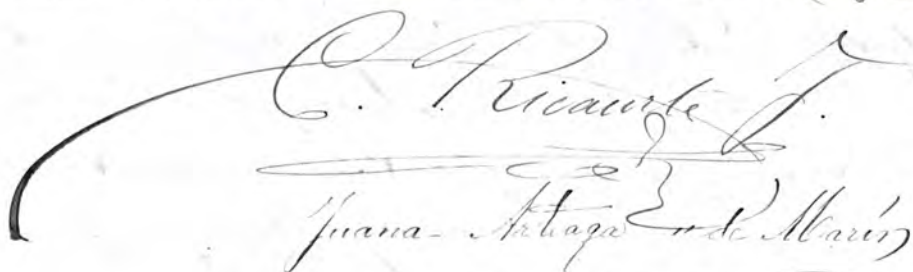 C. Ricaurte J.
Juana Artiaga de Marín